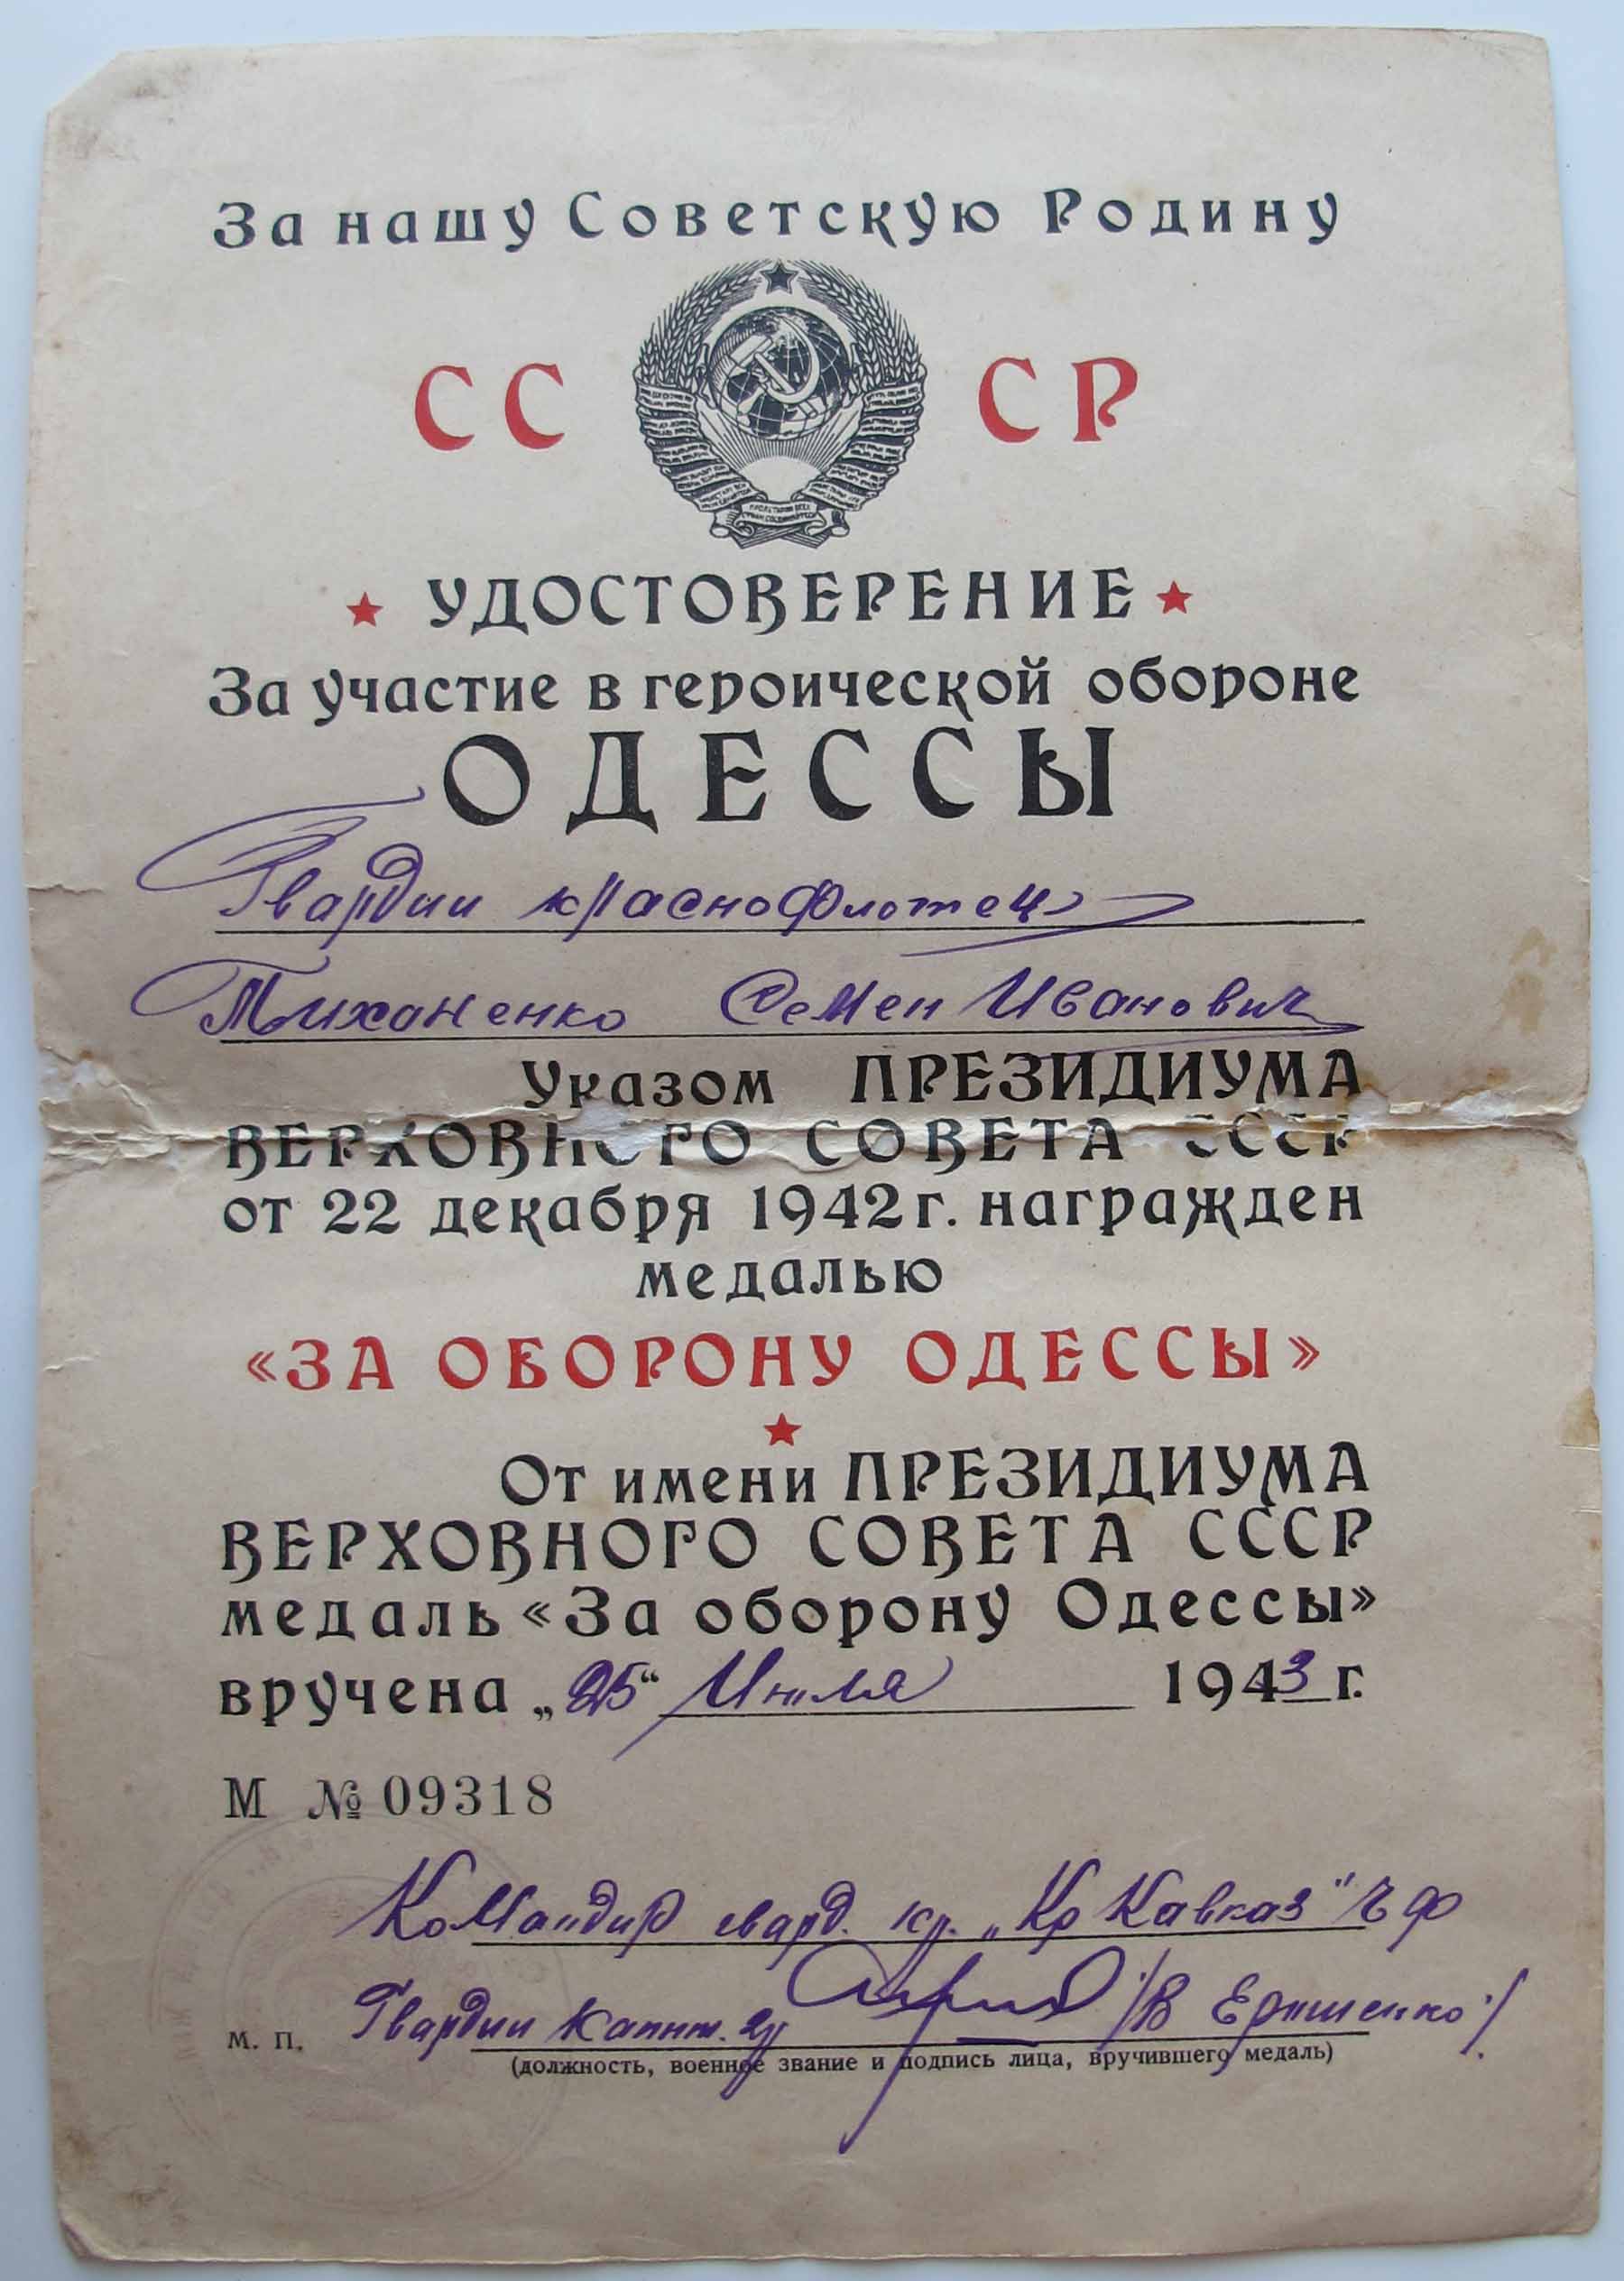 За нашу Советскую Родину
СС СР
УДОСТОВЕРЕНИЕ
За участие в героической обороне
ОДЕССЫ
Гвардии краснофлотец
Тихоненко Семен Иванович
Указом ПРЕЗИДИУМА
ВЕРХОВНОГО СОВЕТА СССР
от 22 декабря 1942 г. награжден
медалью
«ЗА ОБОРОНУ ОДЕССЫ»
От имени ПРЕЗИДИУМА
ВЕРХОВНОГО СОВЕТА СССР
медаль «За оборону Одессы»
вручена „25“ Июля 1943 г.
М № 09318
Командир гвард. кр. „Кр Кавказ" ЧФ
Гвардии Капит. 2р /В Ерошенко/
м. п.
(должность, военное звание и подпись лица, вручившего медаль)